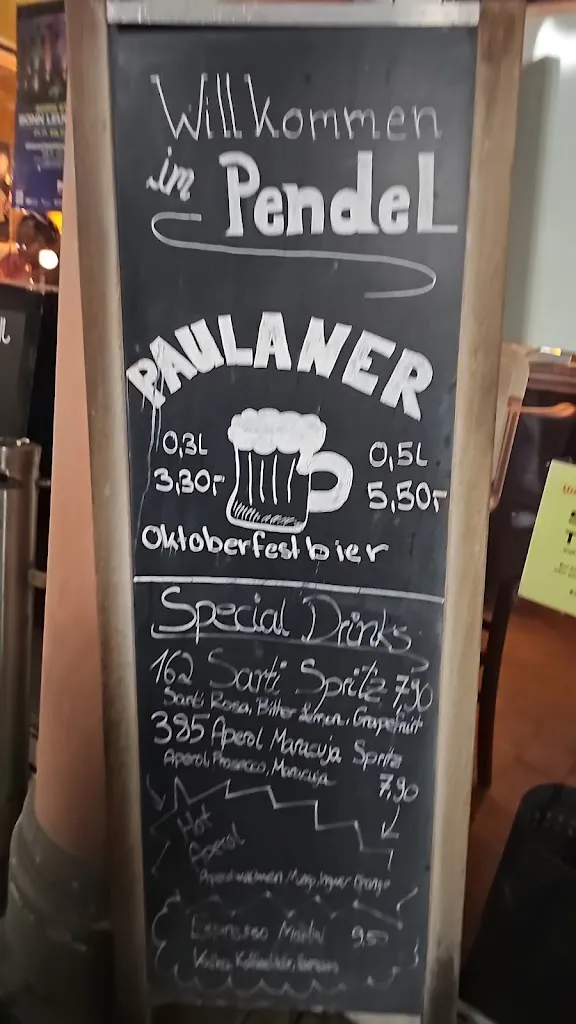 Willkommen
im Pendel
PAULANER
0,3L 0,5L
3,30,- 5,50,-
Oktoberfestbier
Special Drinks
162 Sarti Spritz 7,90
Sarti Rosa, Bitter Lemon, Grapefruit
385 Aperol Maracuja Spritz
Aperol, Prosecco, Maracuja
7,90
Hot
Aperol
Ingwer Orange
Espresso Martini 9,50